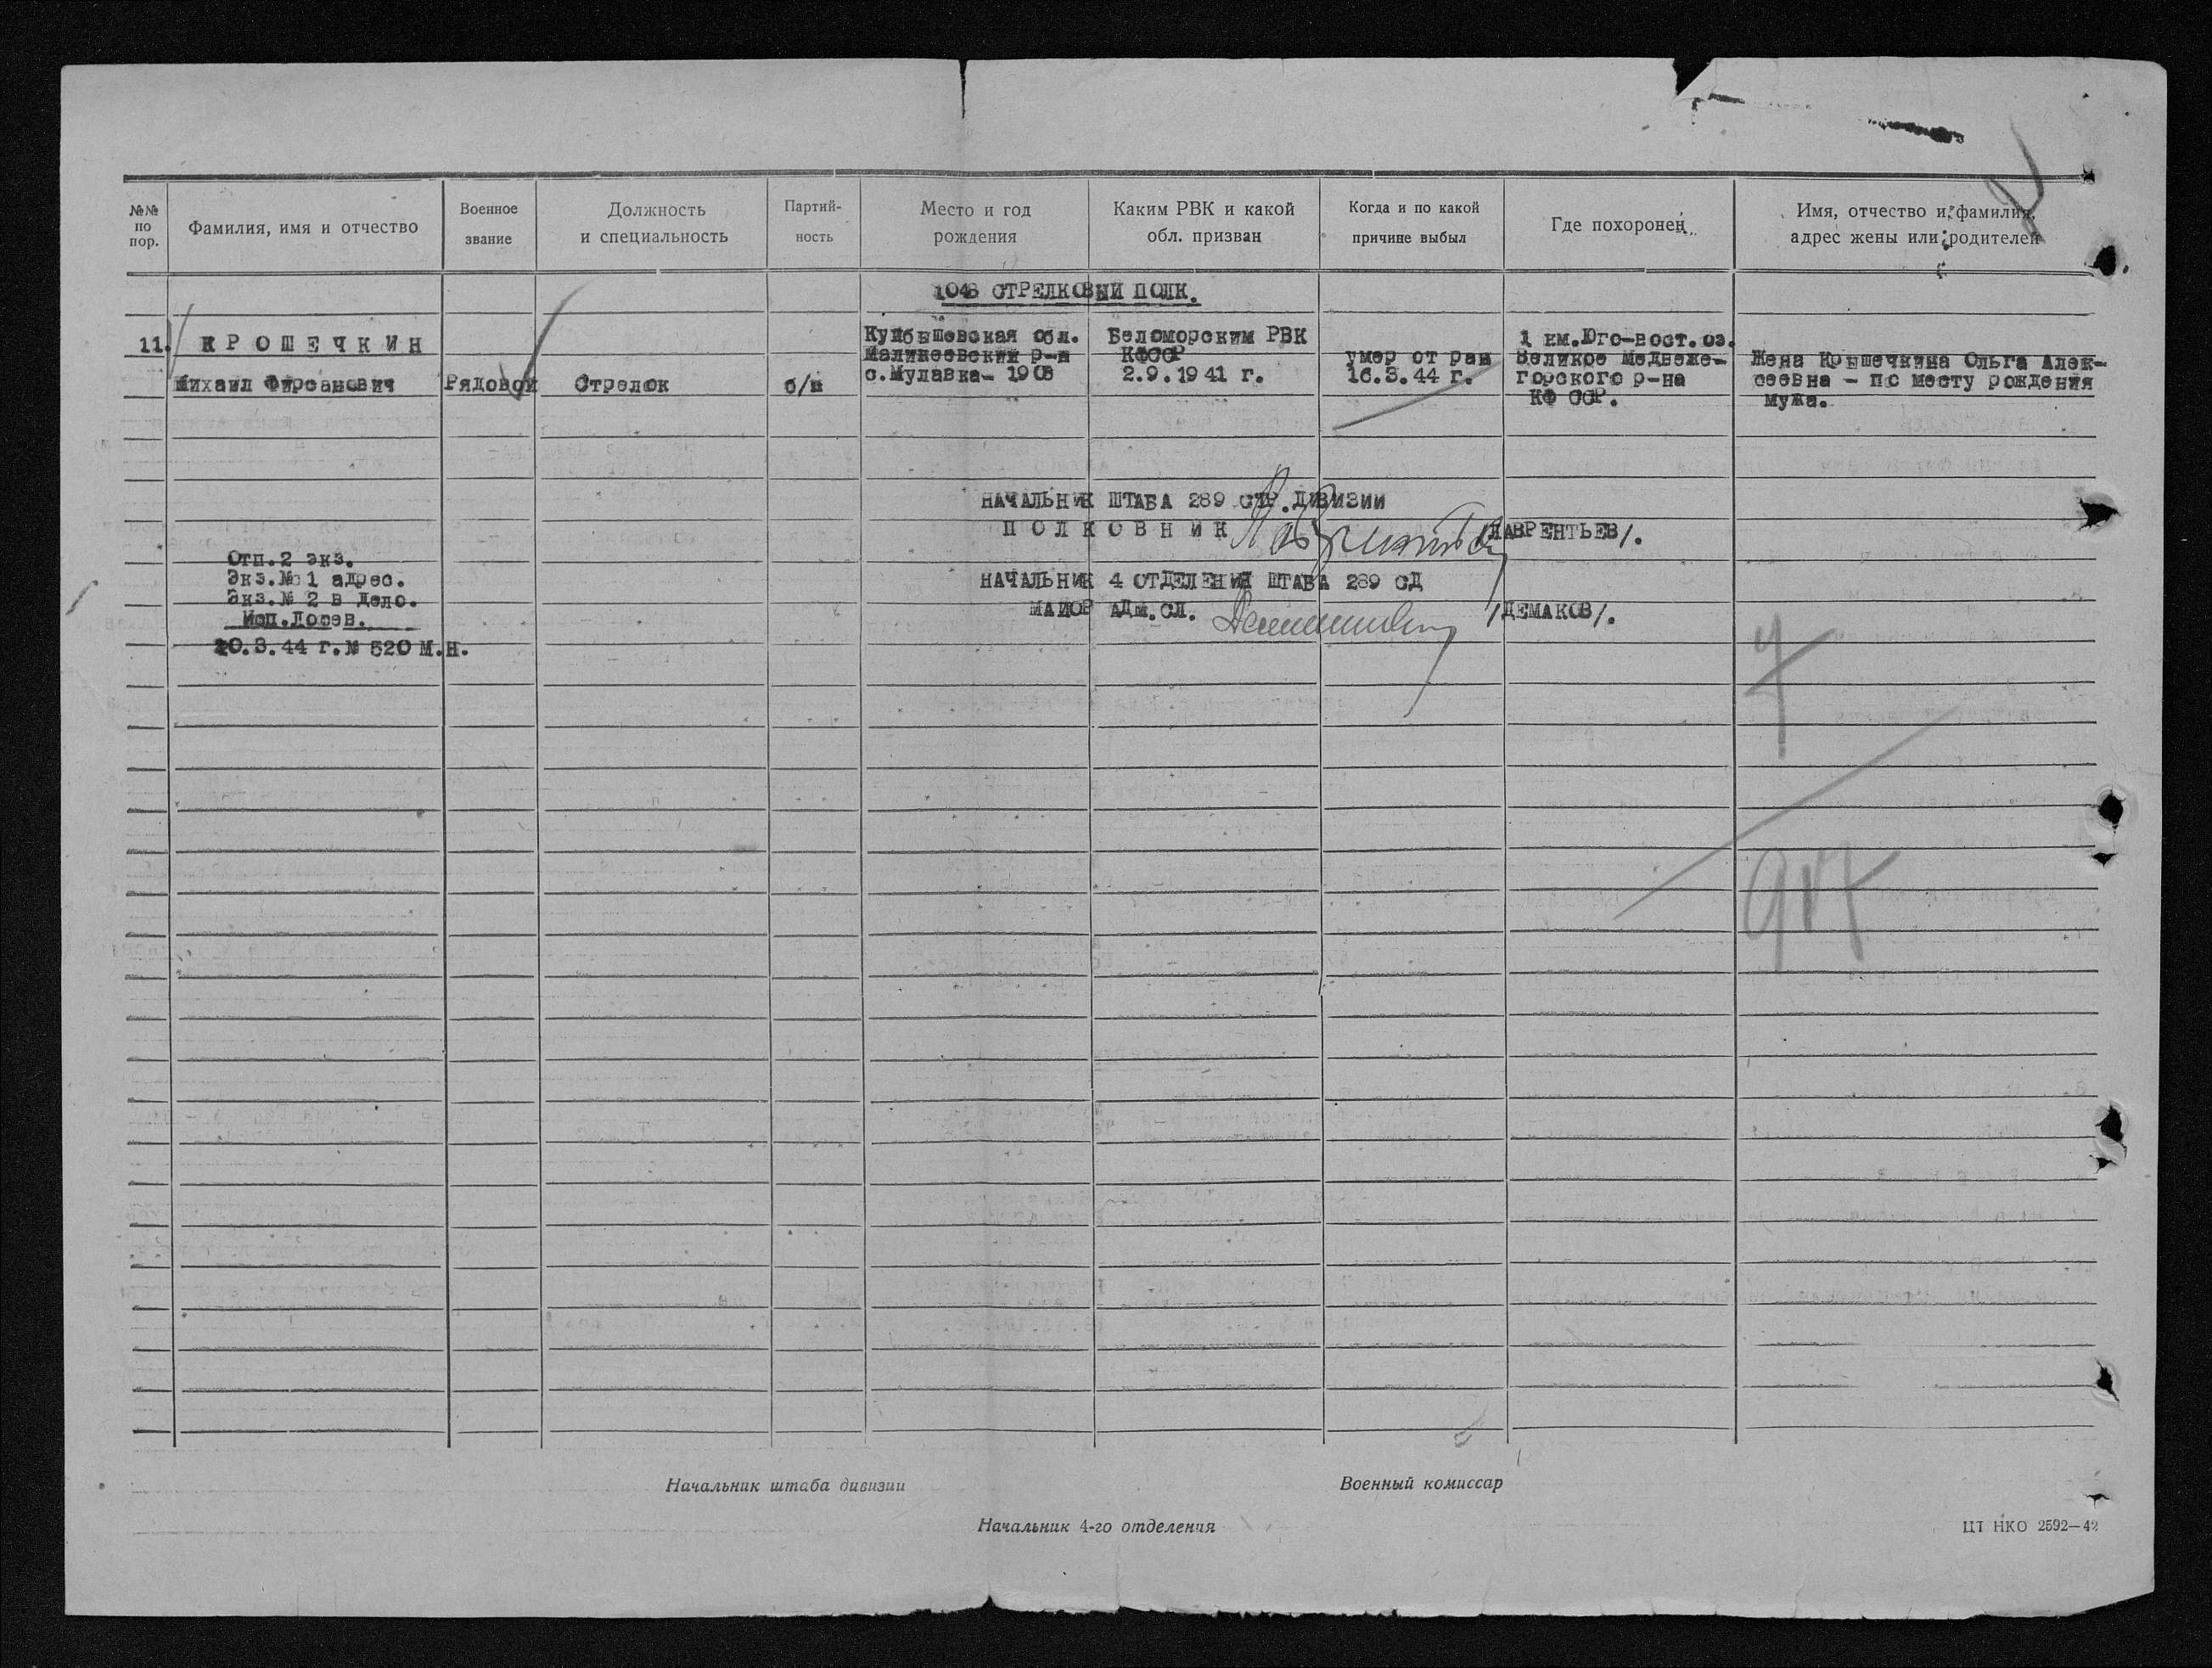 №№ по пор.
Фамилия, имя и отчество
Военное звание
Должность и специальность
Партий-ность
Место и год рождения
Каким РВК и какой обл. призван
Когда и по какой причине выбыл
Где похоронен
Имя, отчество и фамилия, адрес жены или родителей
1048 СТРЕЛКОВЫЙ ПОЛК.
11.
КРОШЕЧКИН
Михаил Фирсанович
Рядовой
Стрелок
б/п
Куйбышевская обл.
Маликеевский р-н
с.Мулавка- 1905
Беломорским РВК
КФССР
2.9.1941 г.
умер от ран
16.3.44 г.
1 км.Юго-вост.оз.
Великое Медвеже-
горского р-на
КФ ССР.
Жена Крышечкина Ольга Алек-
сеевна - по месту рождения
мужа.
НАЧАЛЬНИК ШТАБА 289 СТР.ДИВИЗИИ
ПОЛКОВНИК /ЛАВРЕНТЬЕВ/.
НАЧАЛЬНИК 4 ОТДЕЛЕНИЯ ШТАБА 289 СД
МАЙОР АДМ.СЛ. /ДЕМАКОВ/.
Отп.2 экз.
Экз.№ 1 адрес.
Экз.№ 2 в дело.
Исп.Лосев.
20.3.44 г.№ 520 М.Н.
Начальник штаба дивизии
Военный комиссар
Начальник 4-го отделения
ЦТ НКО 2592—42